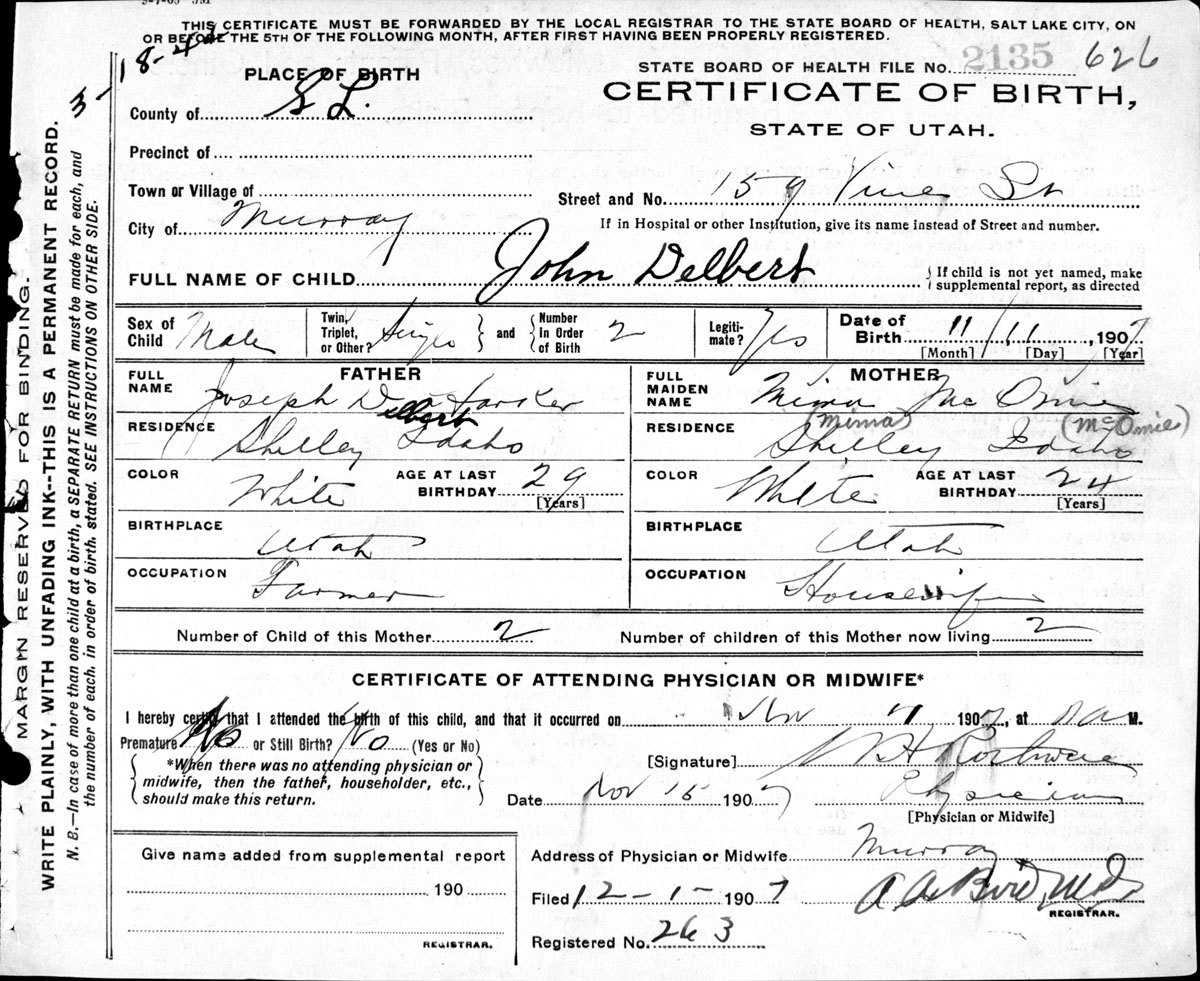 THIS CERTIFICATE MUST BE FORWARDED BY THE LOCAL REGISTRAR TO THE STATE BOARD OF HEALTH, SALT LAKE CITY, ON
OR BEFORE THE 5TH OF THE FOLLOWING MONTH, AFTER FIRST HAVING BEEN PROPERLY REGISTERED.
STATE BOARD OF HEALTH FILE No. 2135 626
CERTIFICATE OF BIRTH,
STATE OF UTAH.
PLACE OF BIRTH
County of S L.
Precinct of
Town or Village of
City of Murray
Street and No. 159 Vine St
If in Hospital or other Institution, give its name instead of Street and number.
FULL NAME OF CHILD John Delbert
If child is not yet named, make
supplemental report, as directed
Sex of Child Male
Twin, Triplet, or Other? Single and Number in Order of Birth 2
Legitimate? Yes
Date of Birth 11 / 11, 1907
[Month] [Day] [Year]
FATHER
FULL NAME Joseph Delbert Harker
RESIDENCE Shelley Idaho
COLOR White AGE AT LAST BIRTHDAY 29 [Years]
BIRTHPLACE Utah
OCCUPATION Farmer
MOTHER
FULL MAIDEN NAME Mima McOmie
(Mima) (McOmie)
RESIDENCE Shelley Idaho
COLOR White AGE AT LAST BIRTHDAY 24 [Years]
BIRTHPLACE Utah
OCCUPATION Housewife
Number of Child of this Mother 2 Number of children of this Mother now living 2
CERTIFICATE OF ATTENDING PHYSICIAN OR MIDWIFE*
I hereby certify that I attended the birth of this child, and that it occurred on Nov 11 1907, at M.
Premature No or Still Birth? No (Yes or No)
*When there was no attending physician or
midwife, then the father, householder, etc.,
should make this return.
[Signature]
Date Nov 15 1907 Physician
[Physician or Midwife]
Give name added from supplemental report
190
REGISTRAR.
Address of Physician or Midwife Murray
Filed 12-1- 1907
REGISTRAR.
Registered No. 263
MARGIN RESERVED FOR BINDING.
WRITE PLAINLY, WITH UNFADING INK--THIS IS A PERMANENT RECORD.
N. B.—In case of more than one child at a birth, a SEPARATE RETURN must be made for each, and
the number of each, in order of birth, stated. SEE INSTRUCTIONS ON OTHER SIDE.